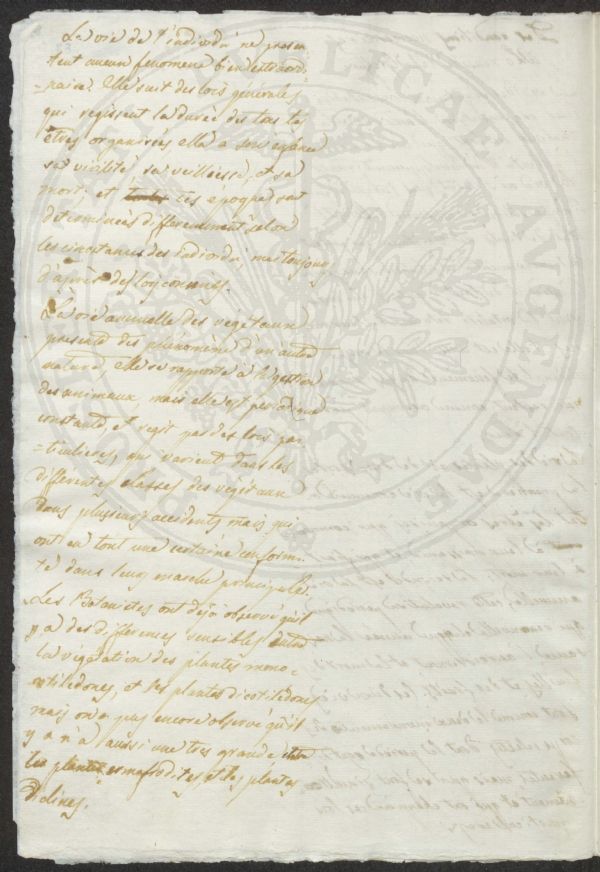 La vie de l'individu ne presen
tent aucun fenomene bien extraordi
=naire. Elle suit des lois générales
qui regissent la durée des tous le
êtres organisés, elle a son enfance
sa virilité, sa veillesse, et sa
mort, et ses epoques sont
determinées differemment selon
les circostances des individu, mais toujours
d'après des lois
La vie annuelle des végétaux
presente des phénomène d'un autre
nature, elle se rapporte à
des animaux, mais elle est
constante, et regit par des lois par
=ticulieres, que varient dans les
differentes classes des végétaux
dans plusieurs accidents mais qui
ont en tout une certaine conformi
té dans leurs marche principale.
Les Botanistes ont déjà observé qu'il
y a des differences sensibles entre
la végétation des plantes mono=
cotiledones, et les plantes dicotiledones
mais on a pas encore observé qu'il
y a n'a aussi une tres grande entre
les plantes ermafrodites, et les plantes
diclines.
PRO BIBLIOTHECAE PUBLICAE AUGENDAE